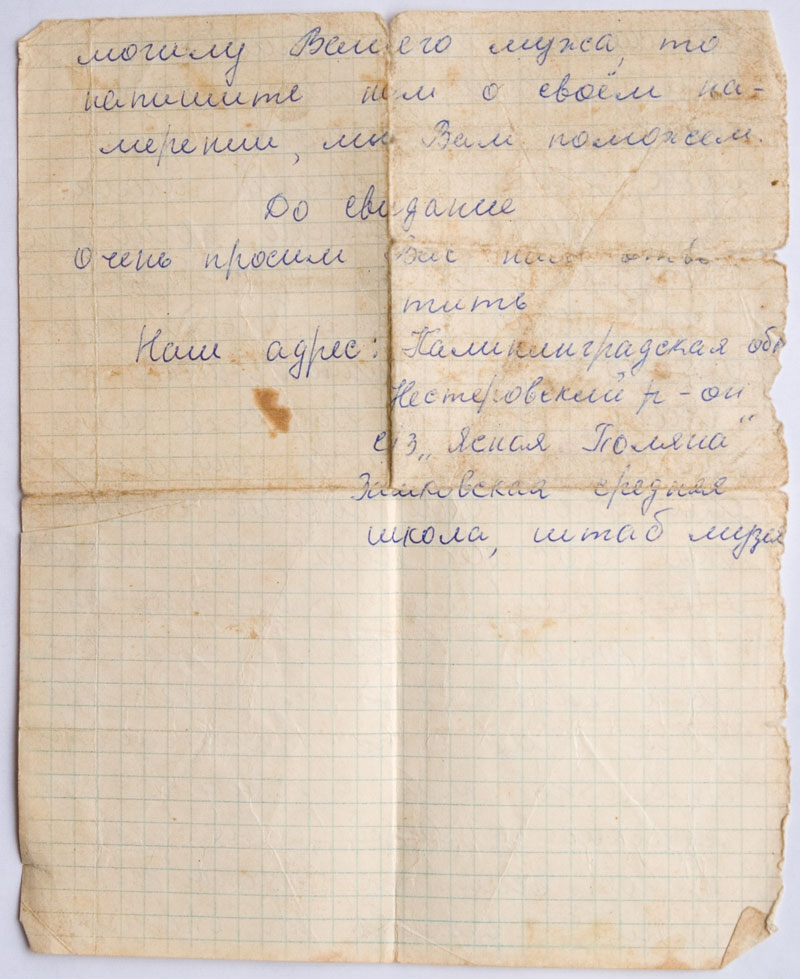 могилу Вашего мужа, то
напишите нам о своём на-
мерении, мы Вам поможем.
До свидание
Очень просим Вас нам отве
тить
Наш адрес: Калининградская обл
Нестеровский р-он
с/з „Ясная Поляна"
средняя
школа, штаб музея